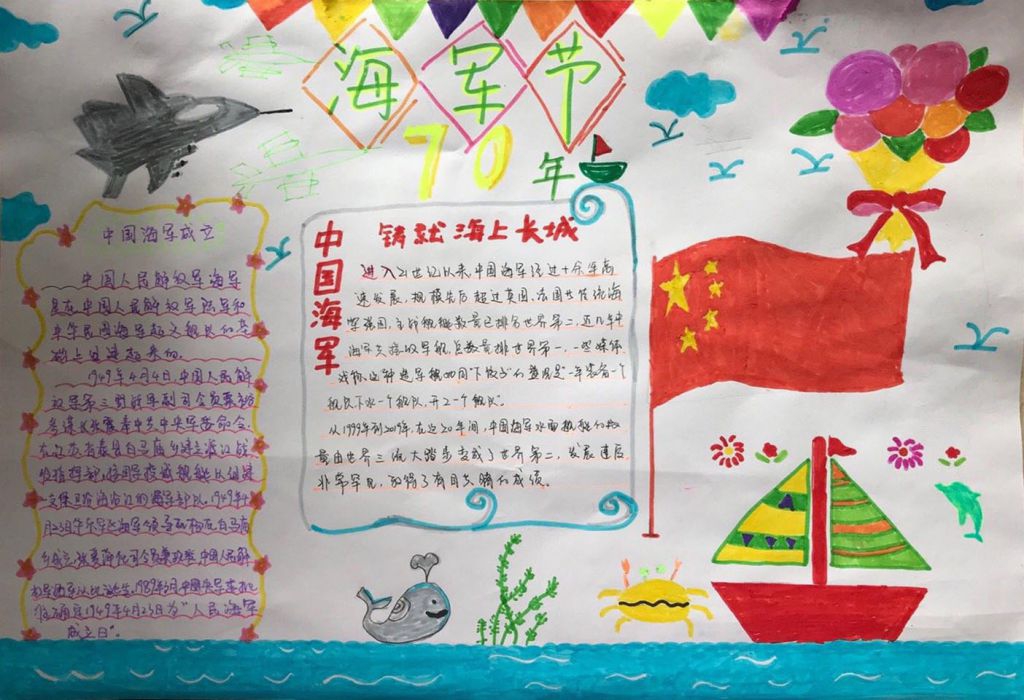 海军节
70年
中国海军成立
中国人民解放军海军
是在中国人民解放军陆军和
中华民国海军起义舰队的基
础上组建起来的。
1949年4月4日,中国人民解
放军第三野战军副司令员粟裕
参谋长张震奉中共中央军委命令,
1949年4
月23日华东军区海军领导机构在白马庙
乡成立,张爱萍任司令员兼政委,中国人民解
1989年3月中国央军委批
准确定1949年4月23日为“人民海军
成立日”。
中国海军
铸就海上长城
进入21世纪以来,中国海军经过十余年高
速发展,规模先后超过英国、法国等传统海
军强国,主战舰艇数量已排名世界第二,近几年中
海军交接的军舰总数量排世界第一,一些媒体
戏称这种造军舰如同“下饺子”
从1999年到2019年,在近20年间,中国海军水面舰艇的数
量由世界三流大踏步变成了世界第二,发展速度
非常罕见,取得了有目共睹的成绩。